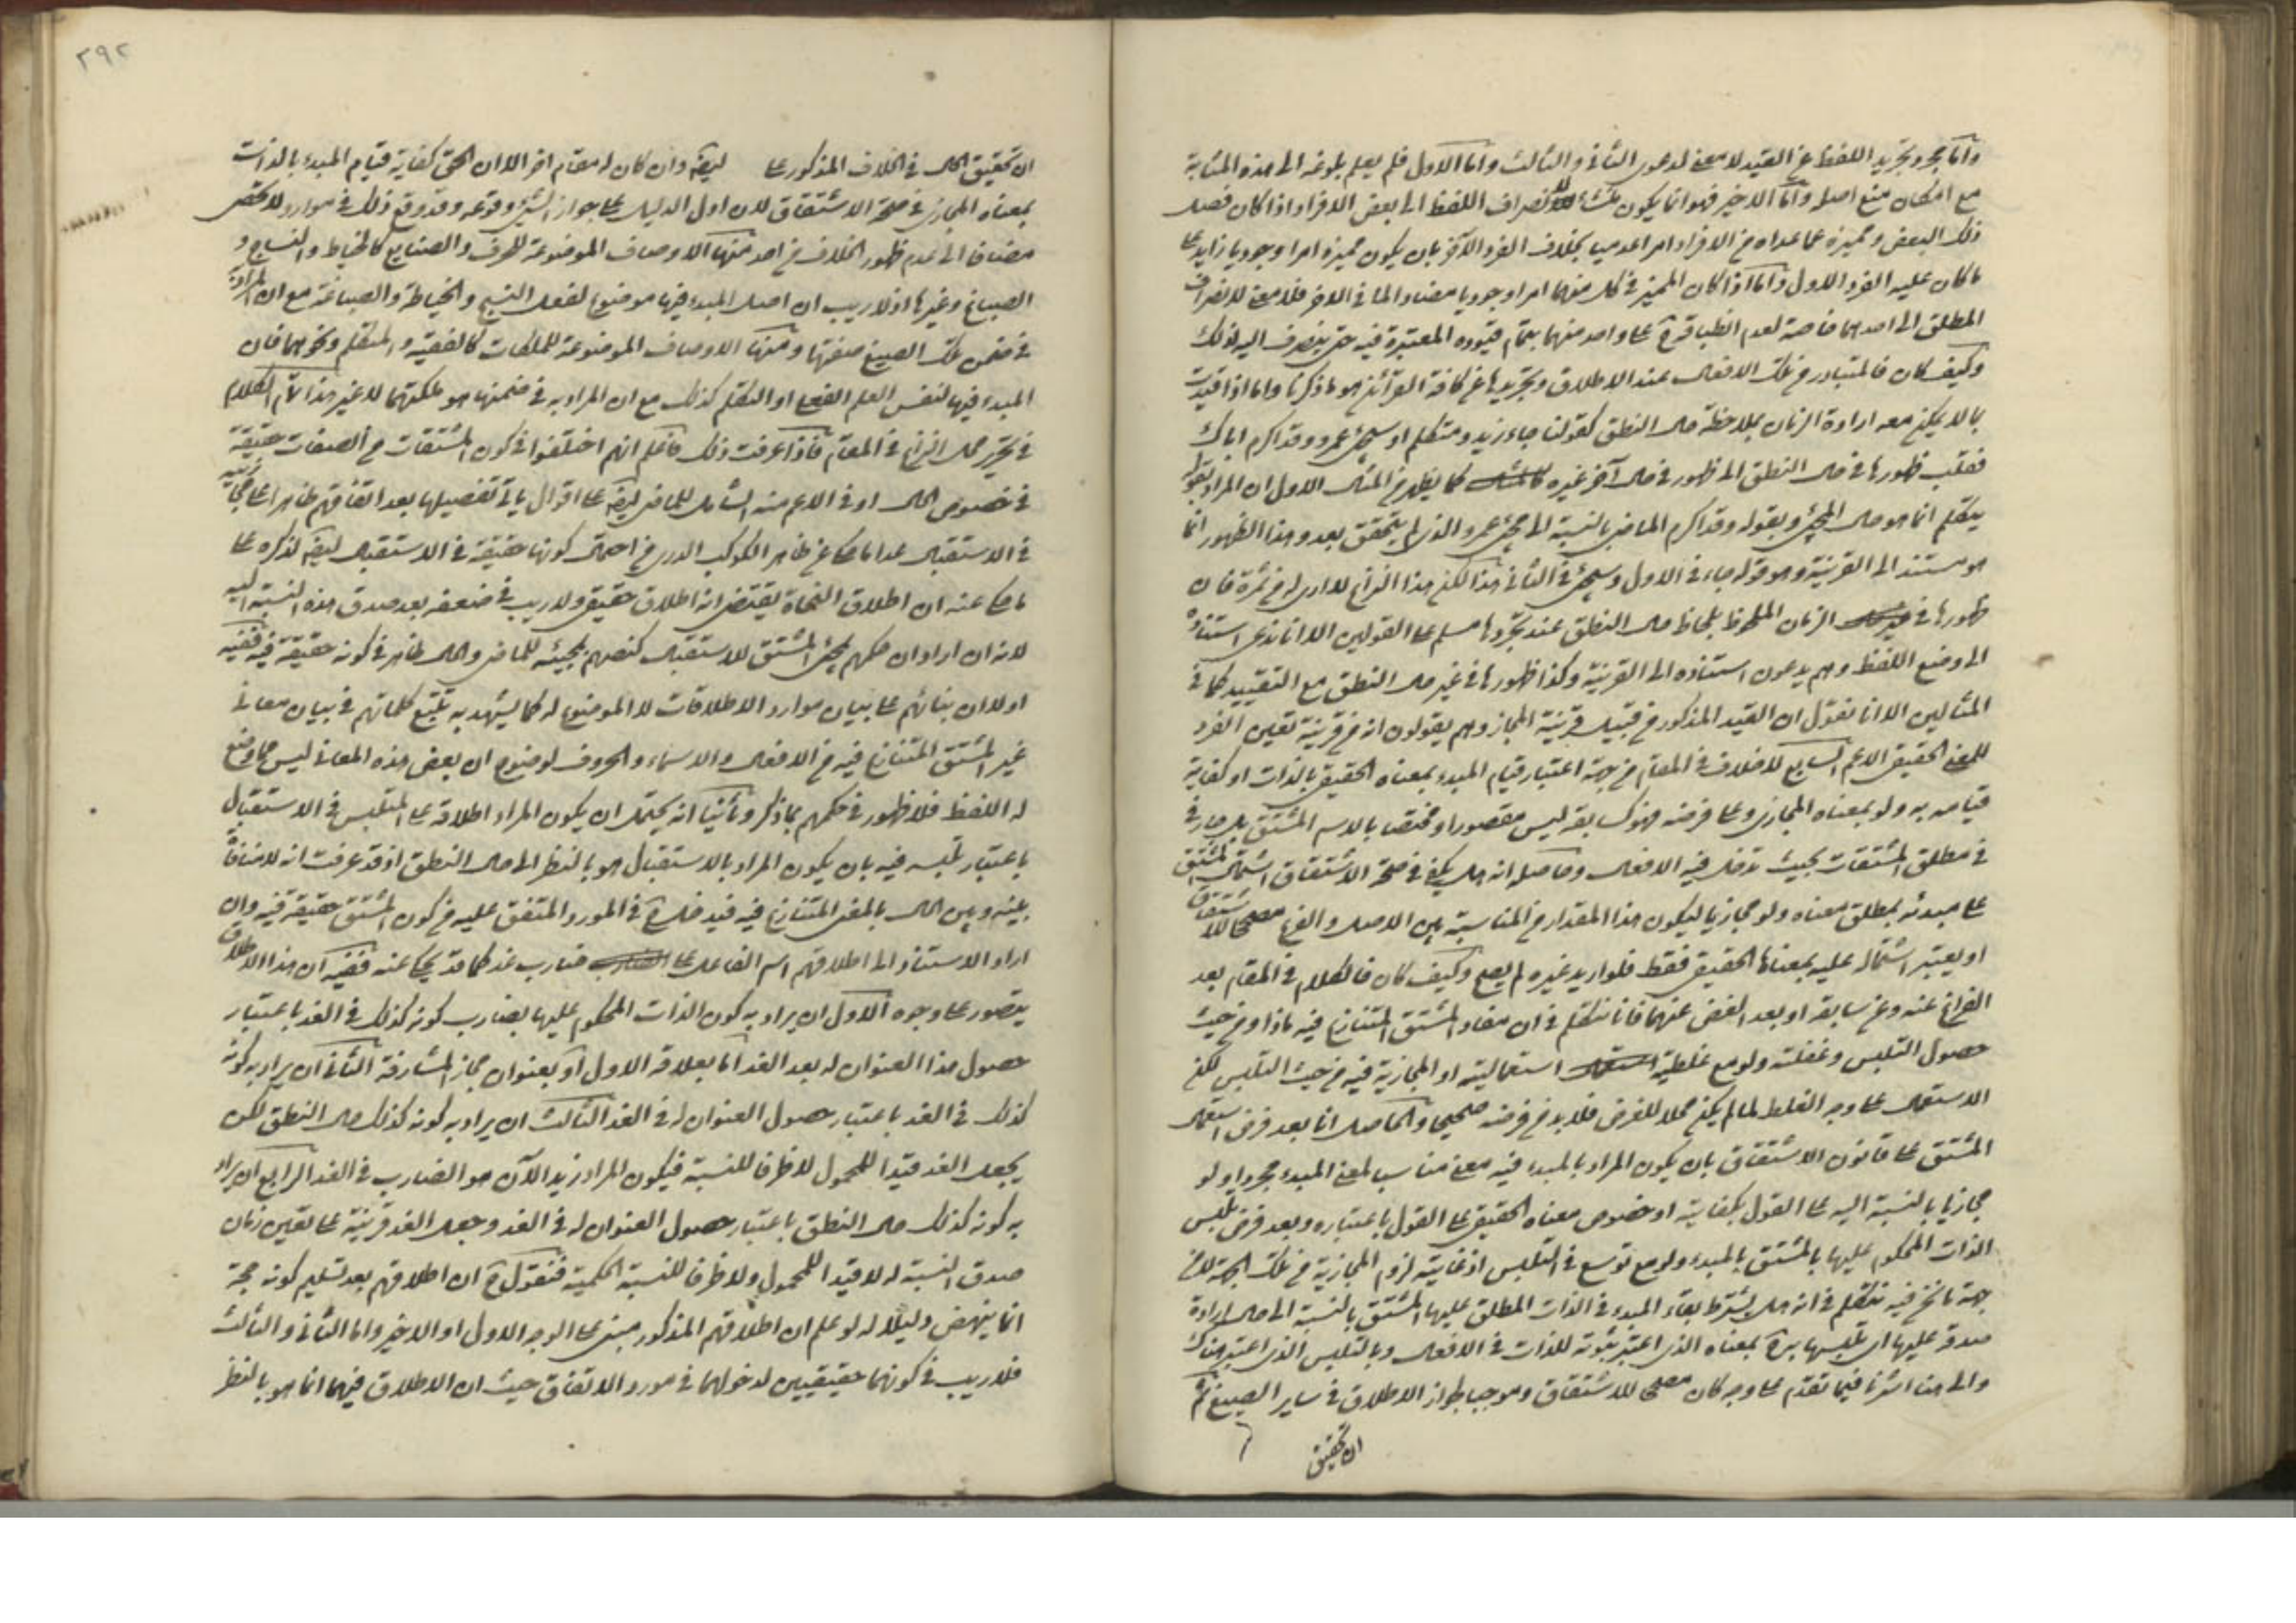 واما مجرد تجريد اللفظ عن القيد لا معنى لدعوى الثاني والثالث واما الاول فلم يعلم بلوغه الى هذه المثابة
مع امكان منع اصله واما الاخير فهو انما يكون منشأ لانصراف اللفظ الى بعض الافراد اذا كان فصل
ذلك البعض ومميزه عما عداه من الافراد امرا عدميا بخلاف الفرد الآخر بان يكون مميزه امرا وجوديا زايدا على
ما كان عليه الفرد الاول واما اذا كان المميز في كل منهما امرا وجوديا مضادا لما في الاخر فلا معنى لانصراف
المطلق الى احدهما خاصة لعدم انطباقه ح على واحد منهما بتمام قيوده المعتبرة فيه حتى ينصرف اليه لذلك
وكيف كان فالمتبادر من تلك الافعال عند الاطلاق وتجريدها عن كافة القرائن هو ما ذكرنا واما اذا قيدت
بما لا يمكن معه ارادة الزمان بملاحظة حال النطق كقولنا جاء زيد و متكلم او سيجئ عمرو وقد اكرم اباك
فقلب ظهورها في حال النطق الى ظهور في حال آخر غيره كما يظهر من المثال الاول ان المراد بقوله
يتكلم انما هو حال المجئ وبقوله وقد اكرم الماضي بالنسبة الى مجئ عمرو الذي لم يتحقق بعد وهذا الظهور انما
هو مستند الى القرينة وهو قوله جاء في الاول وسيجئ في الثاني هذا لكن هذا النزاع لا ارى له من ثمرة فان
ظهورها في الزمان الملحوظ بلحاظ حال النطق عند تجردها مسلم على القولين الا انا ندعى استناده
الى وضع اللفظ وهم يدعون استناده الى القرينة وكذا ظهورها في غير حال النطق مع التقييد كما في
المثالين الا انا نقول ان القيد المذكور من قبيل قرينة المجاز وهم يقولون انه من قرينة تعيين الفرد
للمعنى الحقيقى الاعم السابع لا خلاف في المقام من جهة اعتبار قيام المبدء بمعناه الحقيقي بالذات او كفاية
قيامه به ولو بمعناه المجازى وعلى فرضه فهو كسابقه ليس مقصورا ومختصا بالاسم المشتق بل جار في
في مطلق المشتقات بحيث تدخل فيه الافعال وحاصله انه هل يكفى في صحة الاشتقاق اشتمال المشتق
على مبدئه بمطلق معناه ولو مجازيا ليكون هذا المقدار من المناسبة بين الاصل والفرع مصححا للاشتقاق
او يعتبر اشتماله عليه بمعناها الحقيقى فقط فلو اريد غيره لم يصح وكيف كان فالكلام في المقام بعد
الفراغ عنه وعن سابقه او بعد الغض عنهما فانا نتكلم في ان مفاد المشتق المتنازع فيه ماذا و من حيث
حصول التلبس وغفلته ولو مع غلطية استعماليته او المجازية فيه من حيث التلبس لكن
الاستعمال على وجه الغلط لما لم يكن محلا للغرض فلا بد من فرضه صحيحا والحاصل انا بعد فرض استعمال
المشتق على قانون الاشتقاق بان يكون المراد بالمبدء فيه معنى مناسب لمعنى المبدء مجردا ولو
مجازيا بالنسبة اليه على القول بكفايته او خصوص معناه الحقيقى على القول باعتباره وبعد فرض تلبس
الذات المحكوم عليها بالمشتق بالمبدء ولو مع توسع في التلبس اذ غايته لزوم المجازية من تلك الجهة لا من
جهة ما نحن فيه نتكلم في انه هل يشترط بقاء المبدء في الذات المطلق عليها المشتق بالنسبة الى حال ارادة
صدقه عليها اى تلبسها به ح بمعناه الذي اعتبر ثبوته للذات في الافعال وبالتلبس الذي اعتبر هناك
والى هذا اشرنا فيما تقدم على وجه كان مصححا للاشتقاق وموجبا لجواز الاطلاق في ساير الصيغ ثم
ان تحقيق
٢٩٢
ان تحقيق الحال في الخلاف المذكور على وان كان له مقام اخر الا ان الحق كفاية قيام المبدء بالذات
بمعناه المجازى في صحة الاشتقاق لان اول الدليل على جواز الشئ وقوعه وقد وقع ذلك في موارد لا تحصى
مضافا الى عدم ظهور الخلاف من احد منها الاوصاف الموضوعة للحرف والصنايع كالخياط والنساج و
الصباغ وغيرها اذ لا ريب ان اصل المبدء فيها موضوع لفعل النسج والخياطة والصباغة مع ان المراد به
في ضمن تلك الصيغ صنعتها ومنها الاوصاف الموضوعة للملكات كالفقيه والمتكلم ونحوهما فان
المبدء فيها لنفس العلم الفعلى او التكلم كذلك مع ان المراد به في ضمنها هو ملكتهما لا غير هذا تمام الكلام
في تحرير محل النزاع في المقام فاذا عرفت ذلك فاعلم انهم اختلفوا في كون المشتقات من الصفات حقيقة
في خصوص الحال او في الاعم منه الشامل للماضى ايضا على اقوال يأتى تفصيلها بعد اتفاقهم ظاهرا على مجازيته
في الاستقبال عدا ما حكى عن ظاهر الكوكب الدرى من احتمال كونها حقيقة في الاستقبال ايضا لذكره على
ما حكى عنه ان اطلاق النحاة يقتضى انه اطلاق حقيقى ولا ريب في ضعفه بعد صدق هذه النسبة اليه
لانه ان اراد ان حكمهم بمجئ المشتق للاستقبال كنصهم بمجيئه للماضى والحال ظاهر في كونه حقيقة فيه ففيه
اولا ان بنائهم على بيان موارد الاطلاقات لا الموضوع له كما يشهد به تتبع كلماتهم في بيان معانى
غير المشتق المتنازع فيه من الافعال والاسماء والحروف لوضوح ان بعض هذه المعانى ليس مما وضع
له اللفظ فلا ظهور في حكمهم بما ذكر وثانيا انه يحتمل ان يكون المراد اطلاقه على المتلبس في الاستقبال
باعتبار تلبسه فيه بان يكون المراد بالاستقبال هو بالنظر الى حال النطق اذ قد عرفت انه لا منافاة
بينه وبين الحال بالمعنى المتنازع فيه فيدخل ح في المورد المتفق عليه من كون المشتق حقيقة فيه وان
اراد الاستناد الى اطلاقهم اسم الفاعل على ضارب غد كما قد يحكى عنه ففيه ان هذا الاطلاق
يتصور على وجوه الاول ان يراد به كون الذات المحكوم عليها بضارب كونه كذلك في الغد باعتبار
حصول هذا العنوان له بعد الغد اما بعلاقة الاول او بعنوان مجاز المشارفة الثانى ان يراد به كونه
كذلك في الغد باعتبار حصول العنوان له في الغد الثالث ان يراد به كونه كذلك حال النطق لكن
يجعل الغد قيدا للمحمول لا ظرفا للنسبة فيكون المراد زيد الآن هو الضارب في الغد الرابع ان يراد
به كونه كذلك حال النطق باعتبار حصول العنوان له في الغد وجعل الغد قرينة على تعيين زمان
صدق النسبة له لا قيدا للمحمول ولا ظرفا للنسبة الحكمية فنقول ح ان اطلاقهم بعد تسليم كونه حجة
انما ينهض دليلا له لو علم ان اطلاقهم المذكور مبنى على الوجه الاول او الاخير واما الثانى والثالث
فلا ريب في كونهما حقيقيين لدخولهما في مورد الاتفاق حيث ان الاطلاق فيهما انما هو بالنظر